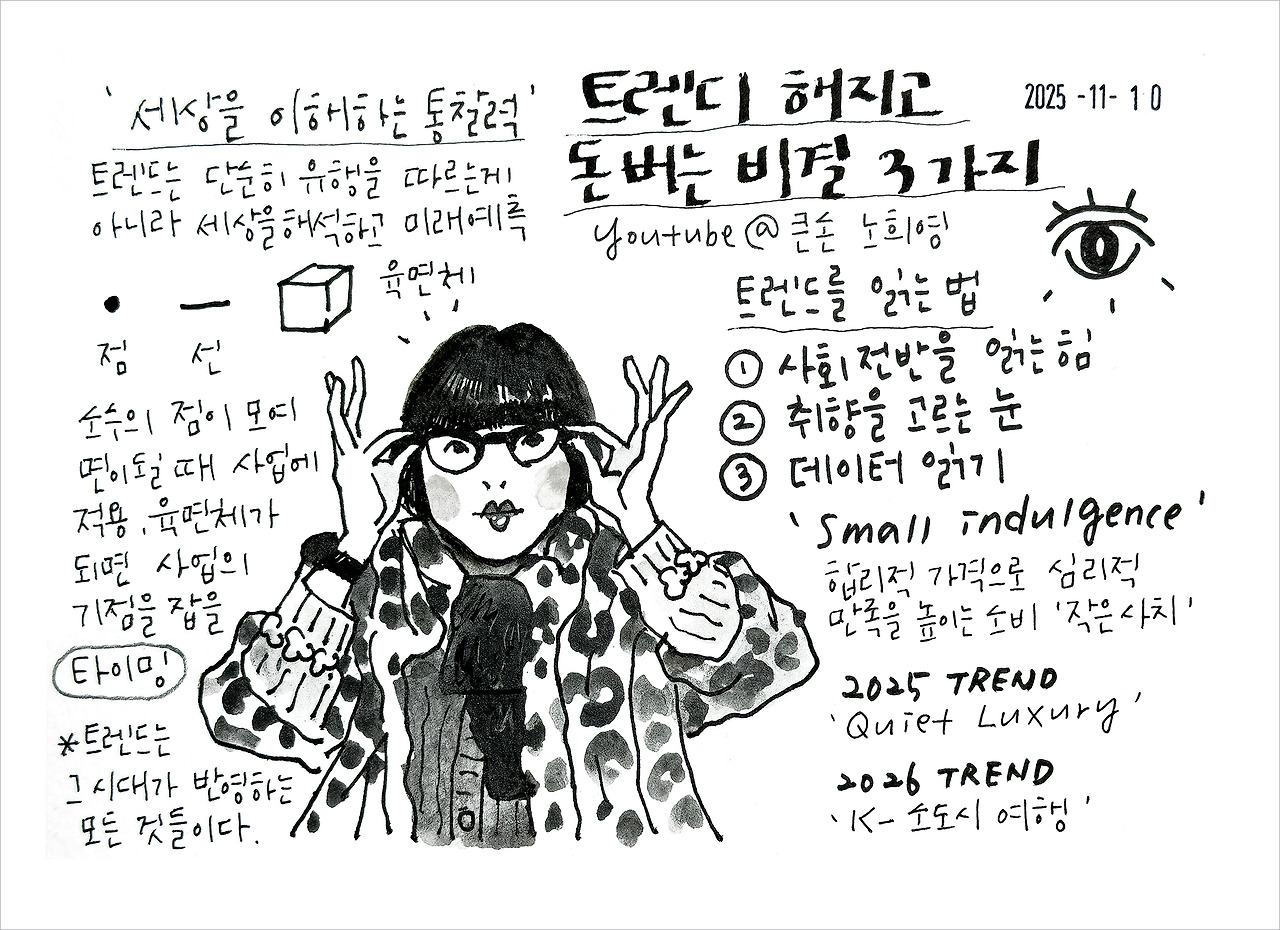 트렌디 해지고
돈버는 비결 3가지
2025-11-10
Youtube @ 큰손 노희영
'세상을 이해하는 통찰력'
트렌드는 단순히 유행을 따르는게
아니라 세상을해석하고 미래예측
육면체
점 선
소수의 점이 모여
면이될때 사업에
적용. 육면체가
되면 사업의
기점을 잡을
타이밍
*트렌드는
그시대가 반영하는
모든 것들이다.
트렌드를 읽는 법
① 사회전반을 읽는힘
② 취향을 고르는 눈
③ 데이터 읽기
'Small indulgence'
합리적 가격으로 심리적
만족을 높이는 소비 '작은사치'
2025 TREND
'Quiet Luxury'
2026 TREND
'K- 소도시 여행'